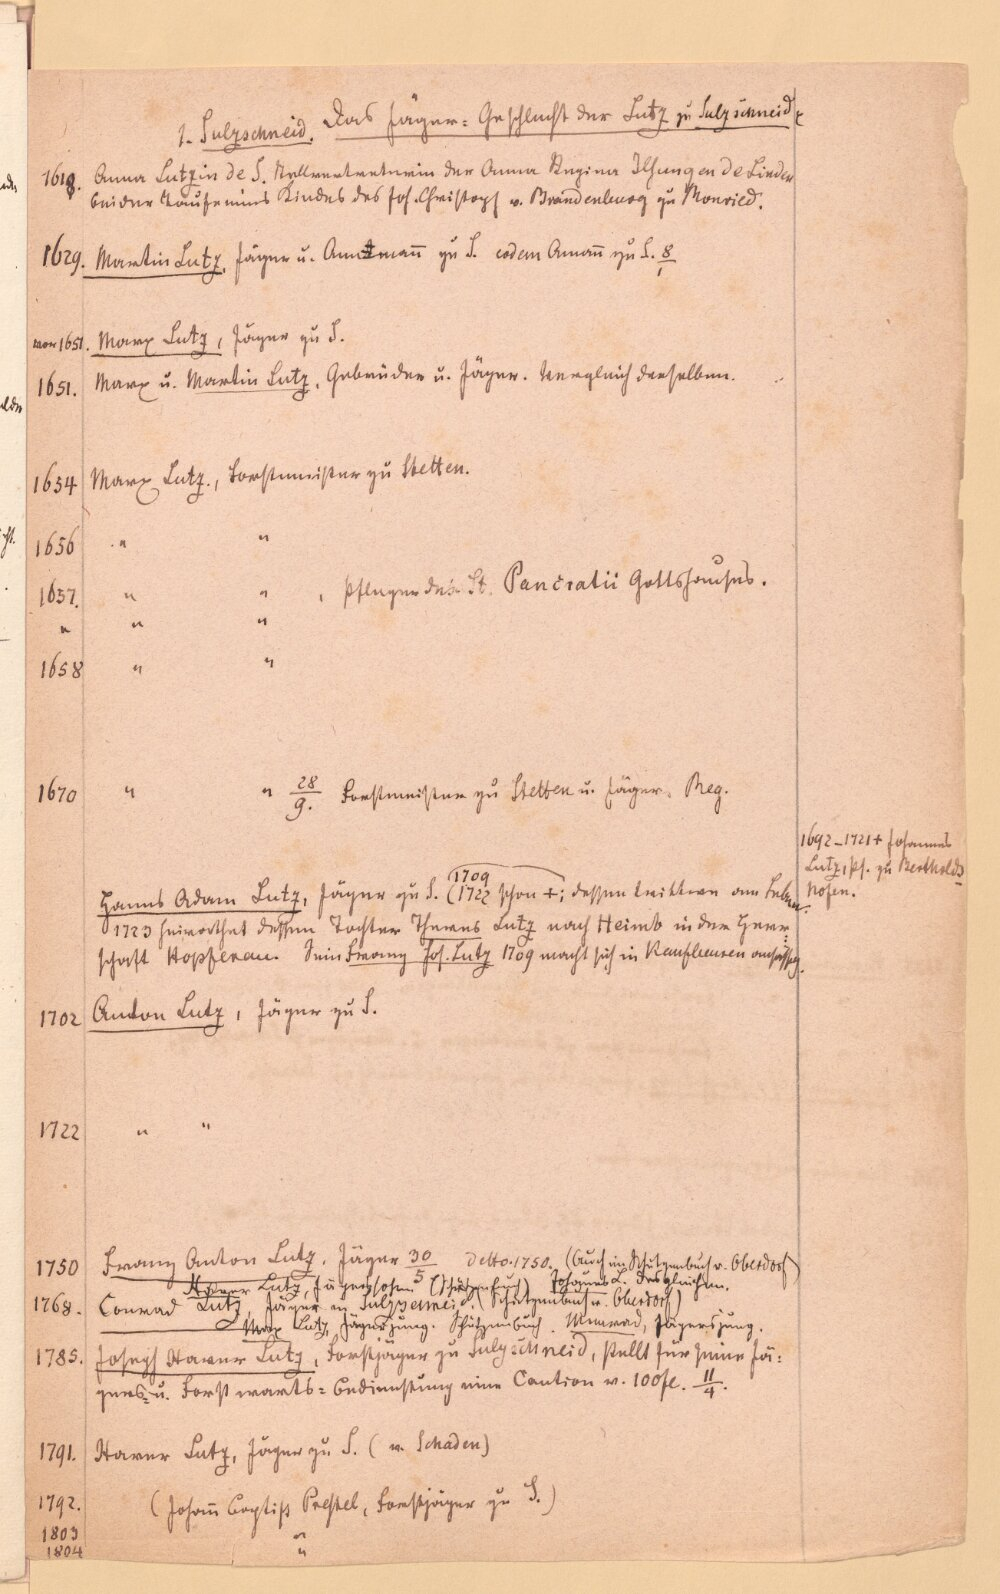 1. Sulzschneid. Das Jäger-Geschlecht der Lutz zu Sulzschneid.
1618. Anna Lutzin de S. Stellvertreterin der Anna Regina Ilsungen de Linder
bei der Taufe eines Kindes des Joh. Christoph v. Brandenburg zu Monried.
1629. Martin Lutz, Jäger u. Amtmañ zu S. eodem Amañ zu S. 8/1
vor 1651. Marx Lutz, Jäger zu S.
1651. Marx u. Martin Lutz, Gebrüder u. Jäger. Vergleich derselben.
1654 Marx Lutz., Forstmeister zu Stetten.
1656 " "
1657. " " , Pfleger des St. Pancratii Gottshauses.
" " "
1658 " "
1670 " " 28/9. Forstmeister zu Stetten u. Jäger. Reg.
1692–1721 + Johannes
Lutz, Pf. zu Bertholds
hofen.
1709
Hanns Adam Lutz, Jäger zu S. (1722 schon +; dessen
1723 heirathet dessen Tochter Theres Lutz nach Heimb in der Herr-
schaft Hopferau. Sein Franz Jos. Lutz 1709 macht sich in Kaufbeuren ansässig.
1702 Anton Lutz, Jäger zu S.
1722 " "
1750 Franz Anton Lutz, Jäger 30/5 detto 1750. (Auch im Schützenbuch v. Oberdorf)
Xaver Lutz, Jägerssohn (Schützenbuch) Johannes L. desgleichen.
1768. Conrad Lutz, Jäger in Sulzschneid. (Schützenbuch v. Oberdorf)
Max Lutz, Jägerjung. Schützenbuch. Meinrad, Jägersjung.
1785. Joseph Xaver Lutz, Forstjäger zu Sulzschneid, stellt für seine Jä-
gers- u. Forstwarts-Bedienstung eine Caution v. 100 fl. 11/4.
1791. Xaver Lutz, Jäger zu S. (v. Schaden)
1792. (Johañ Baptist Prestel, Forstjäger zu S.)
1803 "
1804 "